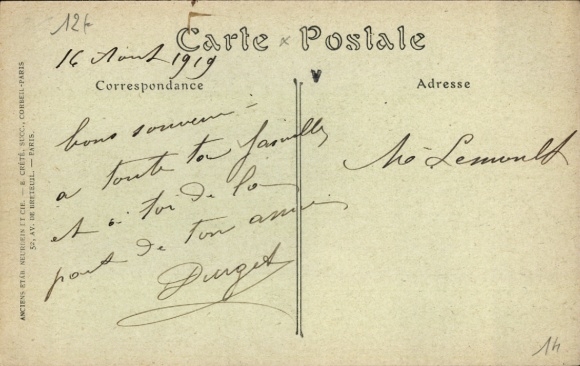 12f
Carte Postale
16 Aout 1919
Correspondance
Adresse
bons souvenir
a toute ta famille
et a toi de la
part de ton amie
Durget
Me Lemoult
ANCIENS ETAB. NEURDEIN ET CIE. — E. CRÉTÉ, SUCC., CORBEIL-PARIS
52, AV. DE BRETEUIL. — PARIS.
14